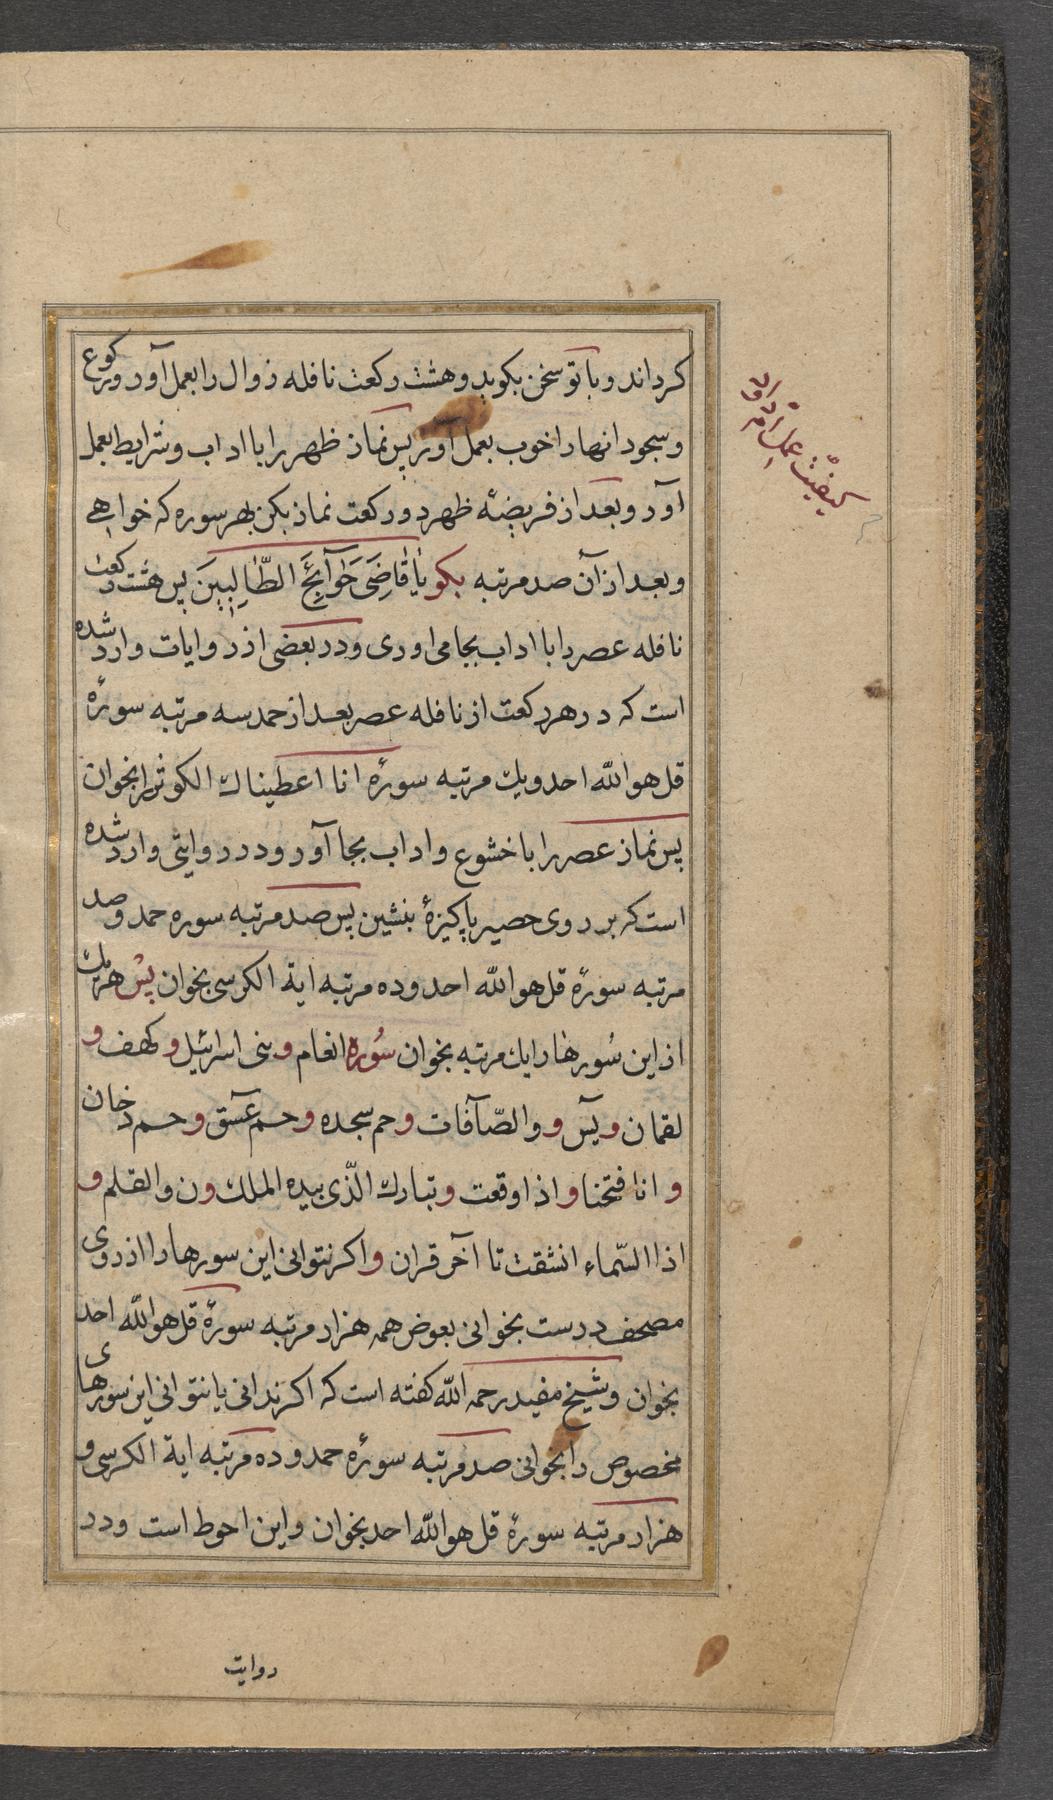 کرداند و با تو سخن بکوید و هشت رکعت نافله زوال را بعمل آور و رکوع
و سجود انها را خوب بعمل اور پس نماز ظهر را با اداب و شرایط بعمل
آور و بعد از فریضه ظهر دو رکعت نماز بکن بهر سوره که خواهے
و بعد از آن صد مرتبه بکو یٰا قٰاضِیَ حَوٰآئِجَ الطّٰالِبِینَ پس هشت رکعت
نافله عصر را با اداب بجا می اوری و در بعضی از روایات وارد شده
است که در هر رکعت از نافله عصر بعد از حمد سه مرتبه سورهٔ
قل هو اللّه احد و یك مرتبه سورهٔ انا اعطیناك الکوثر را بخوان
پس نماز عصر را با خشوع و اداب بجا آور و در روایتی وارد شده
است که بر روی حصیر پاکیزهٔ بنشین پس صد مرتبه سوره حمد و صد
مرتبه سورهٔ قل هو اللّه احد و ده مرتبه ایة الکرسی بخوان پس هر یك
از این سُورها را یك مرتبه بخوان سُورهٔ انعام و بنی اسرائیل و کهف و
لقمان و یآس و و الصّآفات و حم سجده و حم عآسق و حم دخان
و انا فتحنا و اذا وقعت و تبارك الّذی بیده الملك و ن و القلم و
اذا السّماء انشقت تا آخر قران و اکر نتوانی این سورها را از روی
مصحف درست بخوانی بعوض همه هزار مرتبه سورهٔ قل هو اللّه احد
بخوان و شیخ مفید رحمه اللّه کفته است که اکر ندانی یا نتوانی این سورهای
مخصوص را بخوانی صد مرتبه سورهٔ حمد و ده مرتبه ایة الکرسی و
هزار مرتبه سورهٔ قل هو اللّه احد بخوان و این احوط است و در
روایت
کیفیّت عمل امّ داود